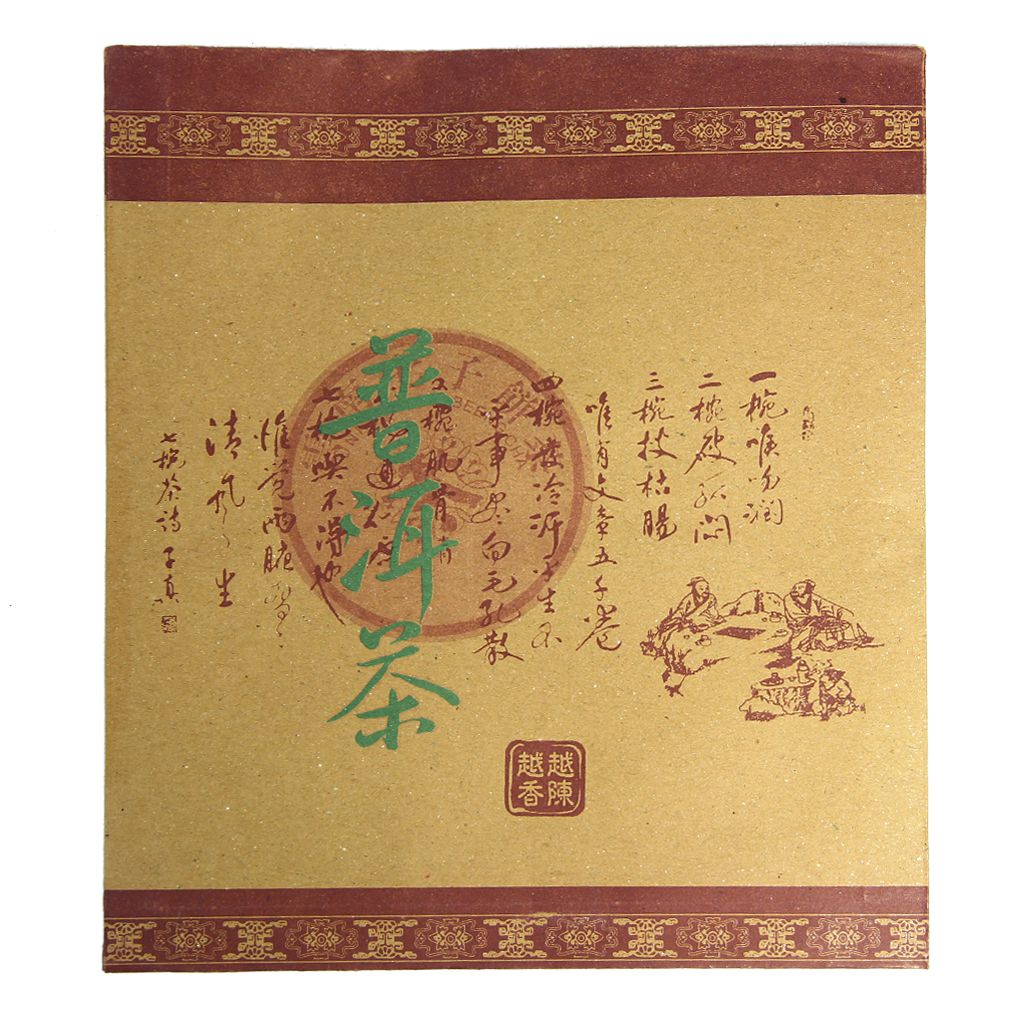 普洱茶
一椀喉吻潤
二椀破孤悶
三椀搜枯腸
唯有文章五千卷
四椀發輕汗平生不
平事盡向毛孔散
五椀肌骨清
椀通仙靈
七椀喫不得也
惟覺兩腋習習
清風生
七椀茶詩 子真
越陳
越香